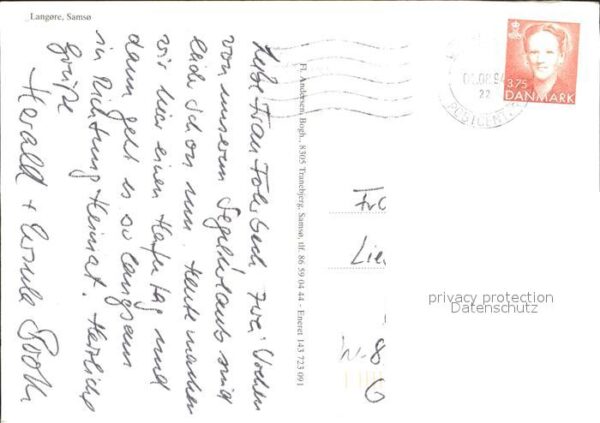 Langøre, Samsø
Liebe Frau Fohrbeck, zwei Wochen
von unserem Segelurlaub sind
leider schon um. Heute machen
wir hier einen Hafentag und
dann geht es so langsam
in Richtung Heimat. Herzliche
Grüße
Harald + Ursula
Fl. Andersen, Bogh., 8305 Tranebjerg, Samsø, tlf. 86 59 04 44 - Eneret 143 723 091
22
POSTCENT
3.75
DANMARK
Fr
Lie
W-8
privacy protection
Datenschutz